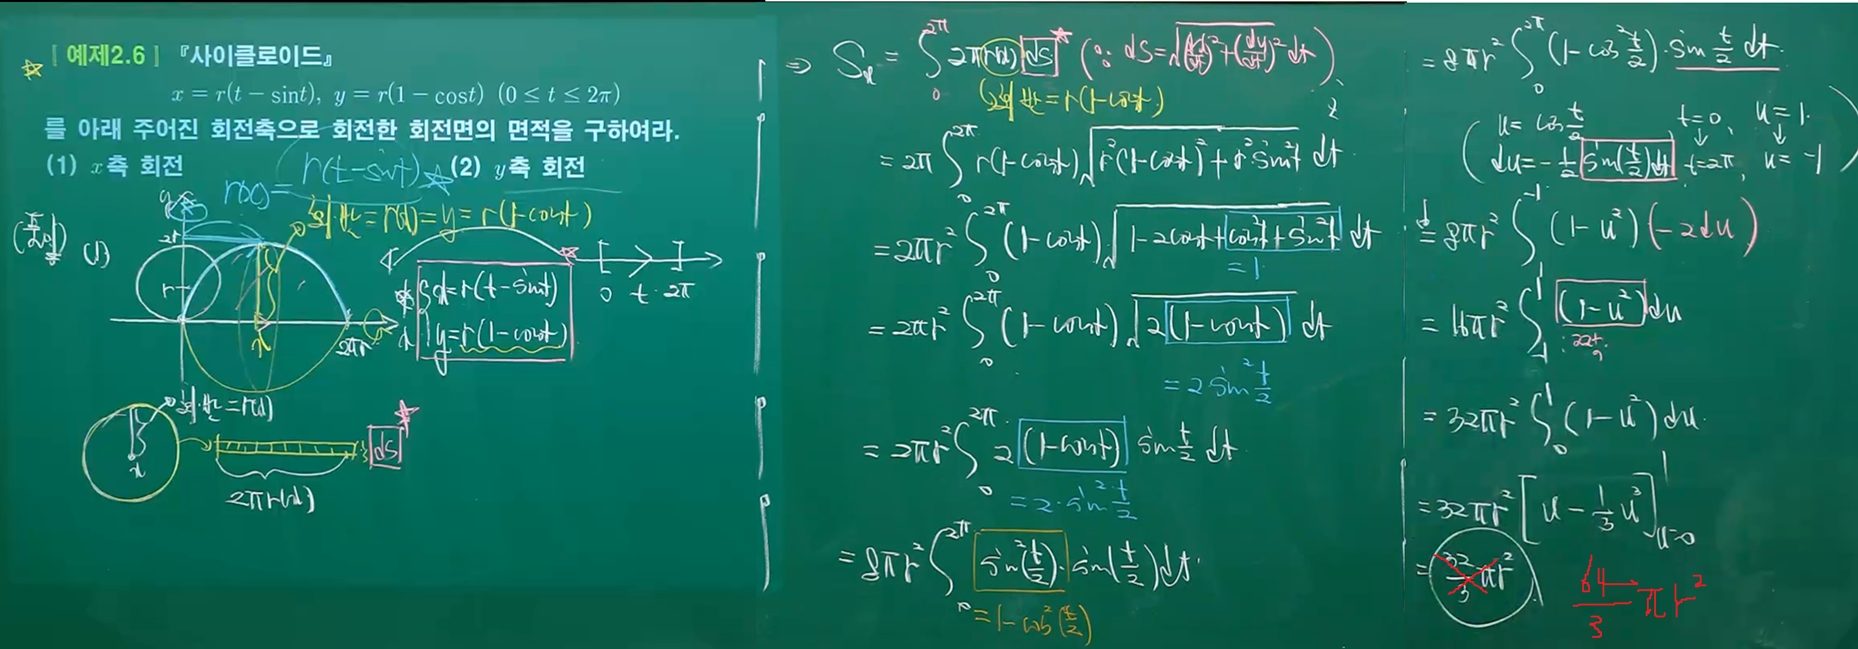 ☆ [ 예제2.6 ] 『사이클로이드』
x = r(t − sint), y = r(1 − cost) (0 ≤ t ≤ 2π)
를 아래 주어진 회전축으로 회전한 회전면의 면적을 구하여라.
(1) x축 회전 (2) y축 회전
r(x) = r(t-sint) ☆
회.반 = r(x) = y = r(1-cost)
(풀이) (1)
2r
r
x
2πr
x = r(t-sint)
y = r(1-cost)
0 t 2π
회.반 = r(x)
x
2πr(x)
ds
⇒ Sx = ∫₀^2π 2πr(x) ds (∵ ds = √((dx/dt)² + (dy/dt)²) dt)
회.반 = r(1-cost)
= 2π ∫₀^2π r(1-cost) √(r²(1-cost)² + r²sin²t) dt
= 2πr² ∫₀^2π (1-cost) √(1-2cost+cos²t+sin²t) dt
= 1.
= 2πr² ∫₀^2π (1-cost) √(2(1-cost)) dt
= 2sin² t/2
= 2πr² ∫₀^2π 2(1-cost) sin t/2 dt
= 2·sin² t/2
= 8πr² ∫₀^2π sin²(t/2)·sin(t/2) dt.
= 1-cos²(t/2)
= 8πr² ∫₀^2π (1-cos² t/2)·sin t/2 dt.
u = cos t/2 t=0, u=1.
du = -1/2 sin(t/2)dt t=2π, u=-1
= 8πr² ∫₁^-1 (1-u²)(-2du)
= 16πr² ∫₋₁^1 (1-u²)du
= 32πr² ∫₀^1 (1-u²)du.
= 32πr² [u - 1/3 u³]₍u=0₎^1
= 32/3 πr² 64/3 πr²